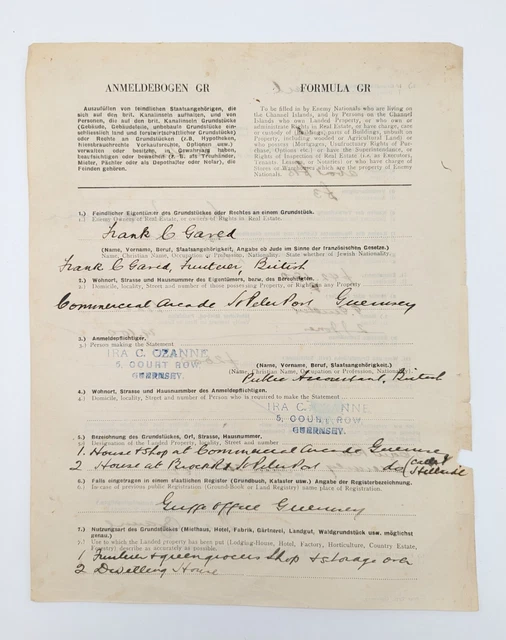 ANMELDEBOGEN GR
FORMULA GR
Auszufüllen von feindlichen Staatsangehörigen, die
sich auf den brit. Kanalinseln aufhalten, und von
Personen, die auf den brit. Kanalinseln Grundstücke
(Gebäude, Gebäudeteile, unbebaute Grundstücke ein-
schliesslich land und forstwirtschaftlicher Grundstücke)
oder Rechte an Grundstücken (z.B. Hypotheken,
Niessbrauchsrechte Vorkaufsrechte, Optionen usw.)
verwalten oder besitzen, in Gewahrsam haben,
beaufsichtigen oder bewachen (z.B. als Treuhänder,
Mieter, Pächter oder als Depothalter oder Notar), die
Feinden gehören.
To be filled in by Enemy Nationals who are living on
the Channel Islands, and by Persons on the Channel
Islands who own Landed Property, or who own or
administrate Rights in Real Estate, or have charge, care
or custody of (Buildings, parts of Buildings, unbuilt on
Property, including wooded or Agricultural Land) or
who possess (Mortgages, Usufructuary Rights of Pur-
chase, Options etc.) or have the Superintendance, or
Rights of Inspection of Real Estate (i.e. as Executors),
Tenants Lessees or Notaries) or who have charge of
Stores or Warehouses which are the property of Enemy
Nationals.
1.) Feindlicher Eigentümer des Grundstückes oder Rechtes an einem Grundstück.
1.) Enemy Owners of Real-Estate, or owners of Rights in Real Estate.
Frank C Gaved
(Name, Vorname, Beruf, Staatsangehörigkeit, Angabe ob Jude im Sinne der französischen Gesetze.)
(Name, Christian Name, Occupation or Profession, Nationality. State whether of Jewish Nationality.
Frank C Gaved, Fruiterer, British
2.) Wohnort, Strasse und Hausnummer des Eigentümers, bezw. des Berechtigten.
2.) Domicile, locality, Street and number of those possessing Property, or Rights in any Property
Commercial Arcade St Peter Port Guernsey
3.) Anmeldepflichtiger.
3.) Person making the Statement
IRA C. OZANNE
5. COURT ROW
GUERNSEY.
(Name, Vorname, Beruf, Staatsangehörigkeit.)
(Name, Christian Name, Occupation or Profession, Nationality.)
Public Accountant, British
4.) Wohnort, Strasse und Hausnummer des Anmeldepflichtigen.
4.) Domicile, locality, Street and number of Person who is required to make the Statement
IRA C. NNE
5. COURT ROW
GUERNSEY.
5.) Bezeichnung des Grundstückes, Ort, Strasse, Hausnummer.
5.) Designation of the Landed Property, locality, Street and number
1. House & Shop at Commercial Arcade Guernsey
2 House at St Peter Port do (called
6.) Falls eingetragen in einem staatlichen Register (Grundbuch, Kataster usw.) Angabe der Registerbezeichnung.
6.) In case of previous public Registration (Ground-Book or Land Register) name place of Registration.
Greffe Office Guernsey
7.) Nutzungsart des Grundstückes (Miethaus, Hotel, Fabrik, Gärtnerei, Landgut, Waldgrundstück usw. möglichst
genau.)
7.) Use to which the Landed property has been put (Lodging-House, Hotel, Factory, Horticulture, Country Estate,
Forestry) describe as accurately as possible.
1 Fruiterer & greengrocers Shop & storage over
2 Dwelling House